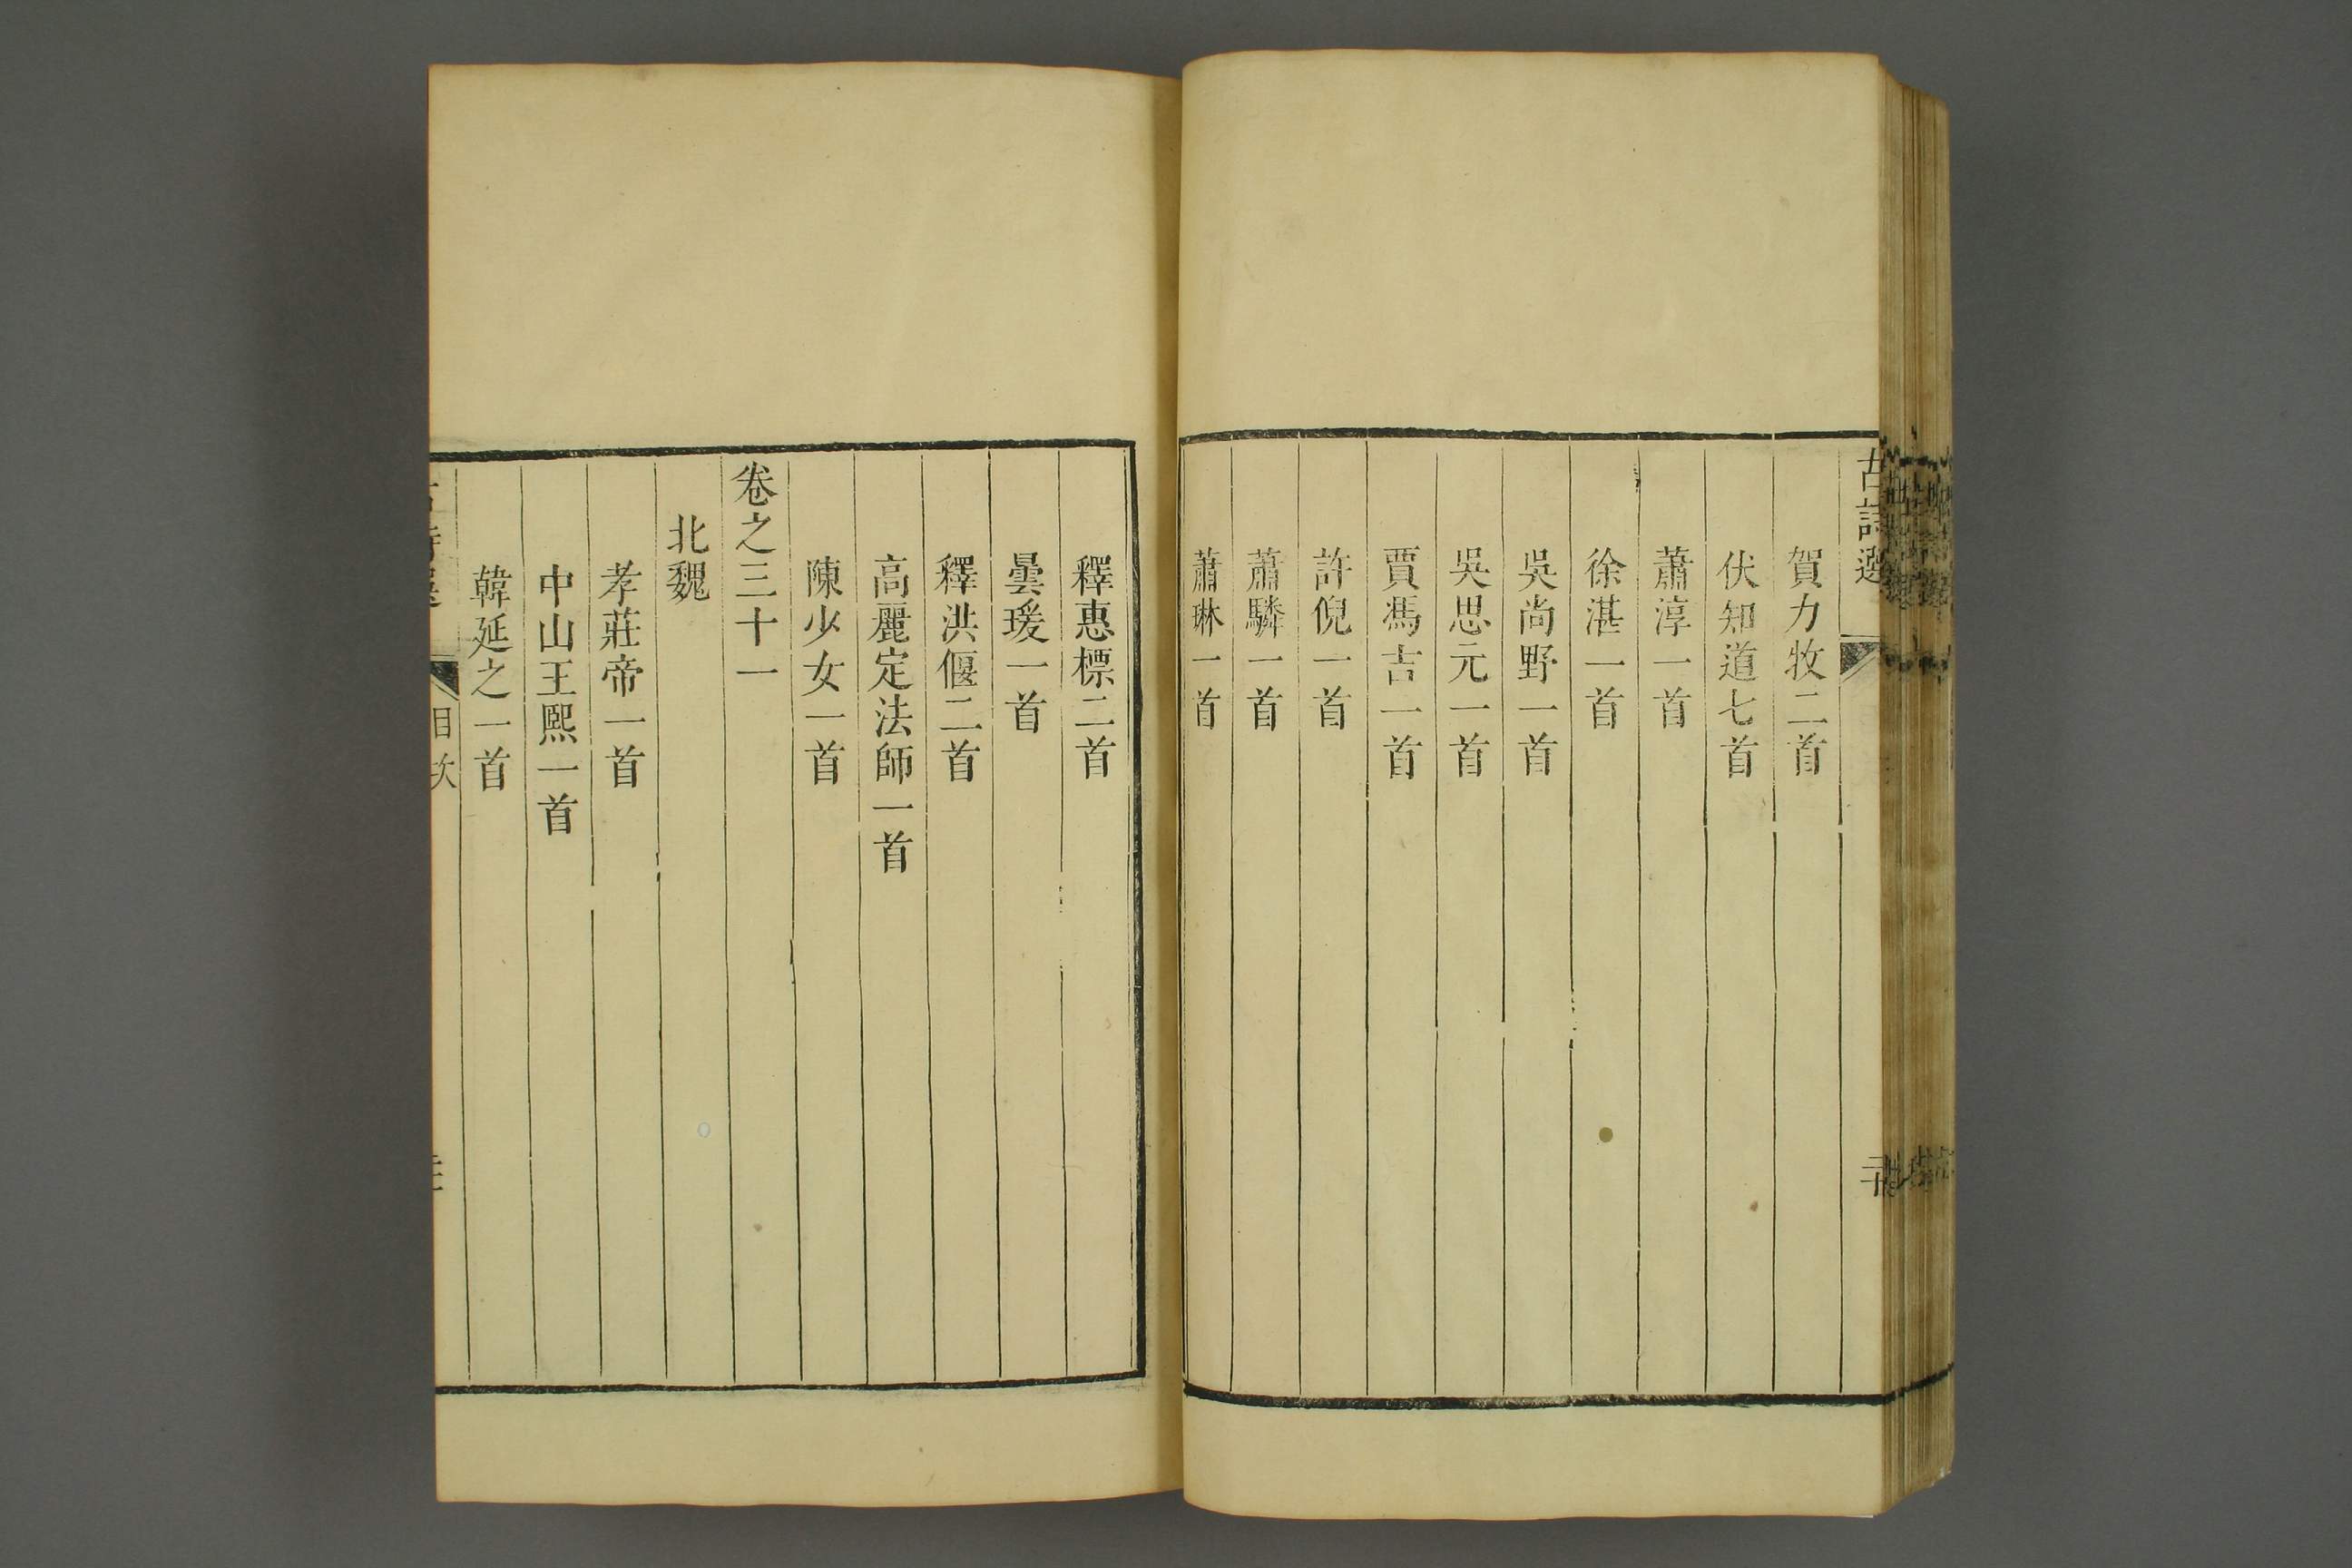 古詩選
賀力牧二首
伏知道七首
蕭淳一首
徐湛一首
吳尚野一首
吳思元一首
賈馮吉一首
許倪一首
蕭驎一首
蕭琳一首
釋惠標二首
曇瑗一首
釋洪偃二首
高麗定法師一首
陳少女一首
卷之三十一
北魏
孝莊帝一首
中山王熙一首
韓延之一首
目次